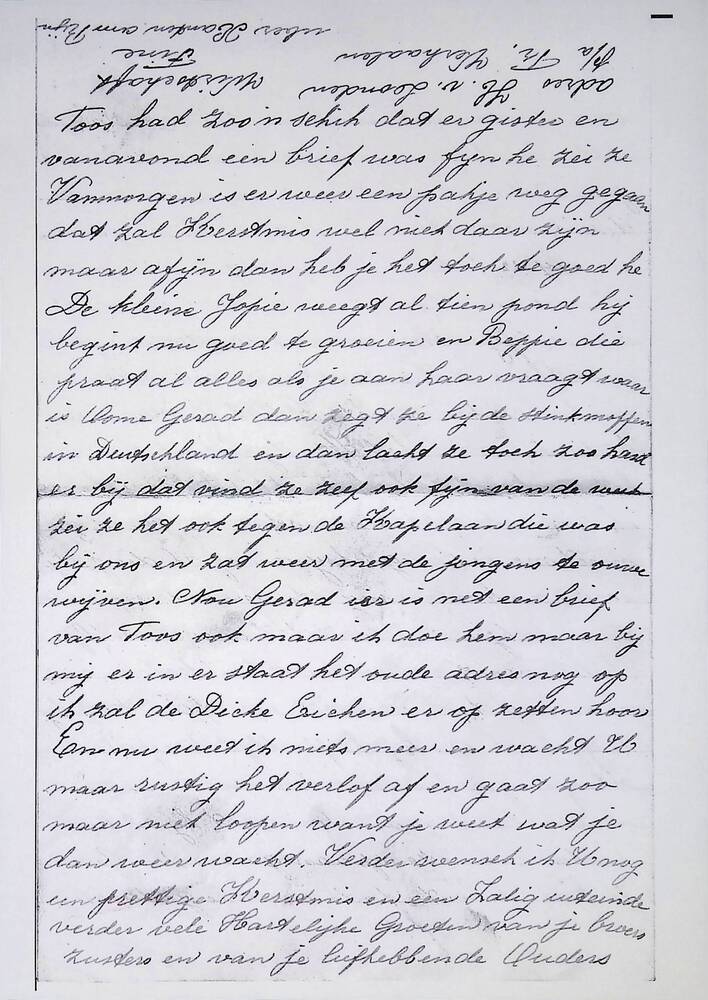 adres H. v. Loonden Wirtschaft
p/a Fr. Verhaalen Fine
uber Xanten am Rijn
Toos had zoo'n schik dat er gister en
vanavond een brief was fijn he zei ze
Vanmorgen is er weer een pakje weg gegaan
dat zal Kerstmis wel niet daar zijn
maar afijn dan heb je het toch te goed he
De kleine Jopie weegt al tien pond hij
begint nu goed te groeien en Beppie die
praat al alles als je aan haar vraagt waar
is Oome Gerad dan zegt ze bij de stinkmoffen
in Deutschland en dan lacht ze toch zoo hard
er bij dat vind ze zelf ook fijn van de week
zei ze het ook tegen de Kapelaan die was
bij ons en zat weer met de jongens te ouwe
wijven. Nou Gerad ier is net een brief
van Toos ook maar ik doe hem maar bij
mij er in er staat het oude adres nog op
ik zal de Dicke Eichen er op zetten hoor
En nu weet ik niets meer en wacht U
maar rustig het verlof af en gaat zoo
maar niet loopen want je weet wat je
dan weer wacht. Verder wensch ik U nog
een prettige Kerstmis en een Zalig uiteinde
verder vele Hartelijke Groeten van je broers
zusters en van je liefhebbende Ouders